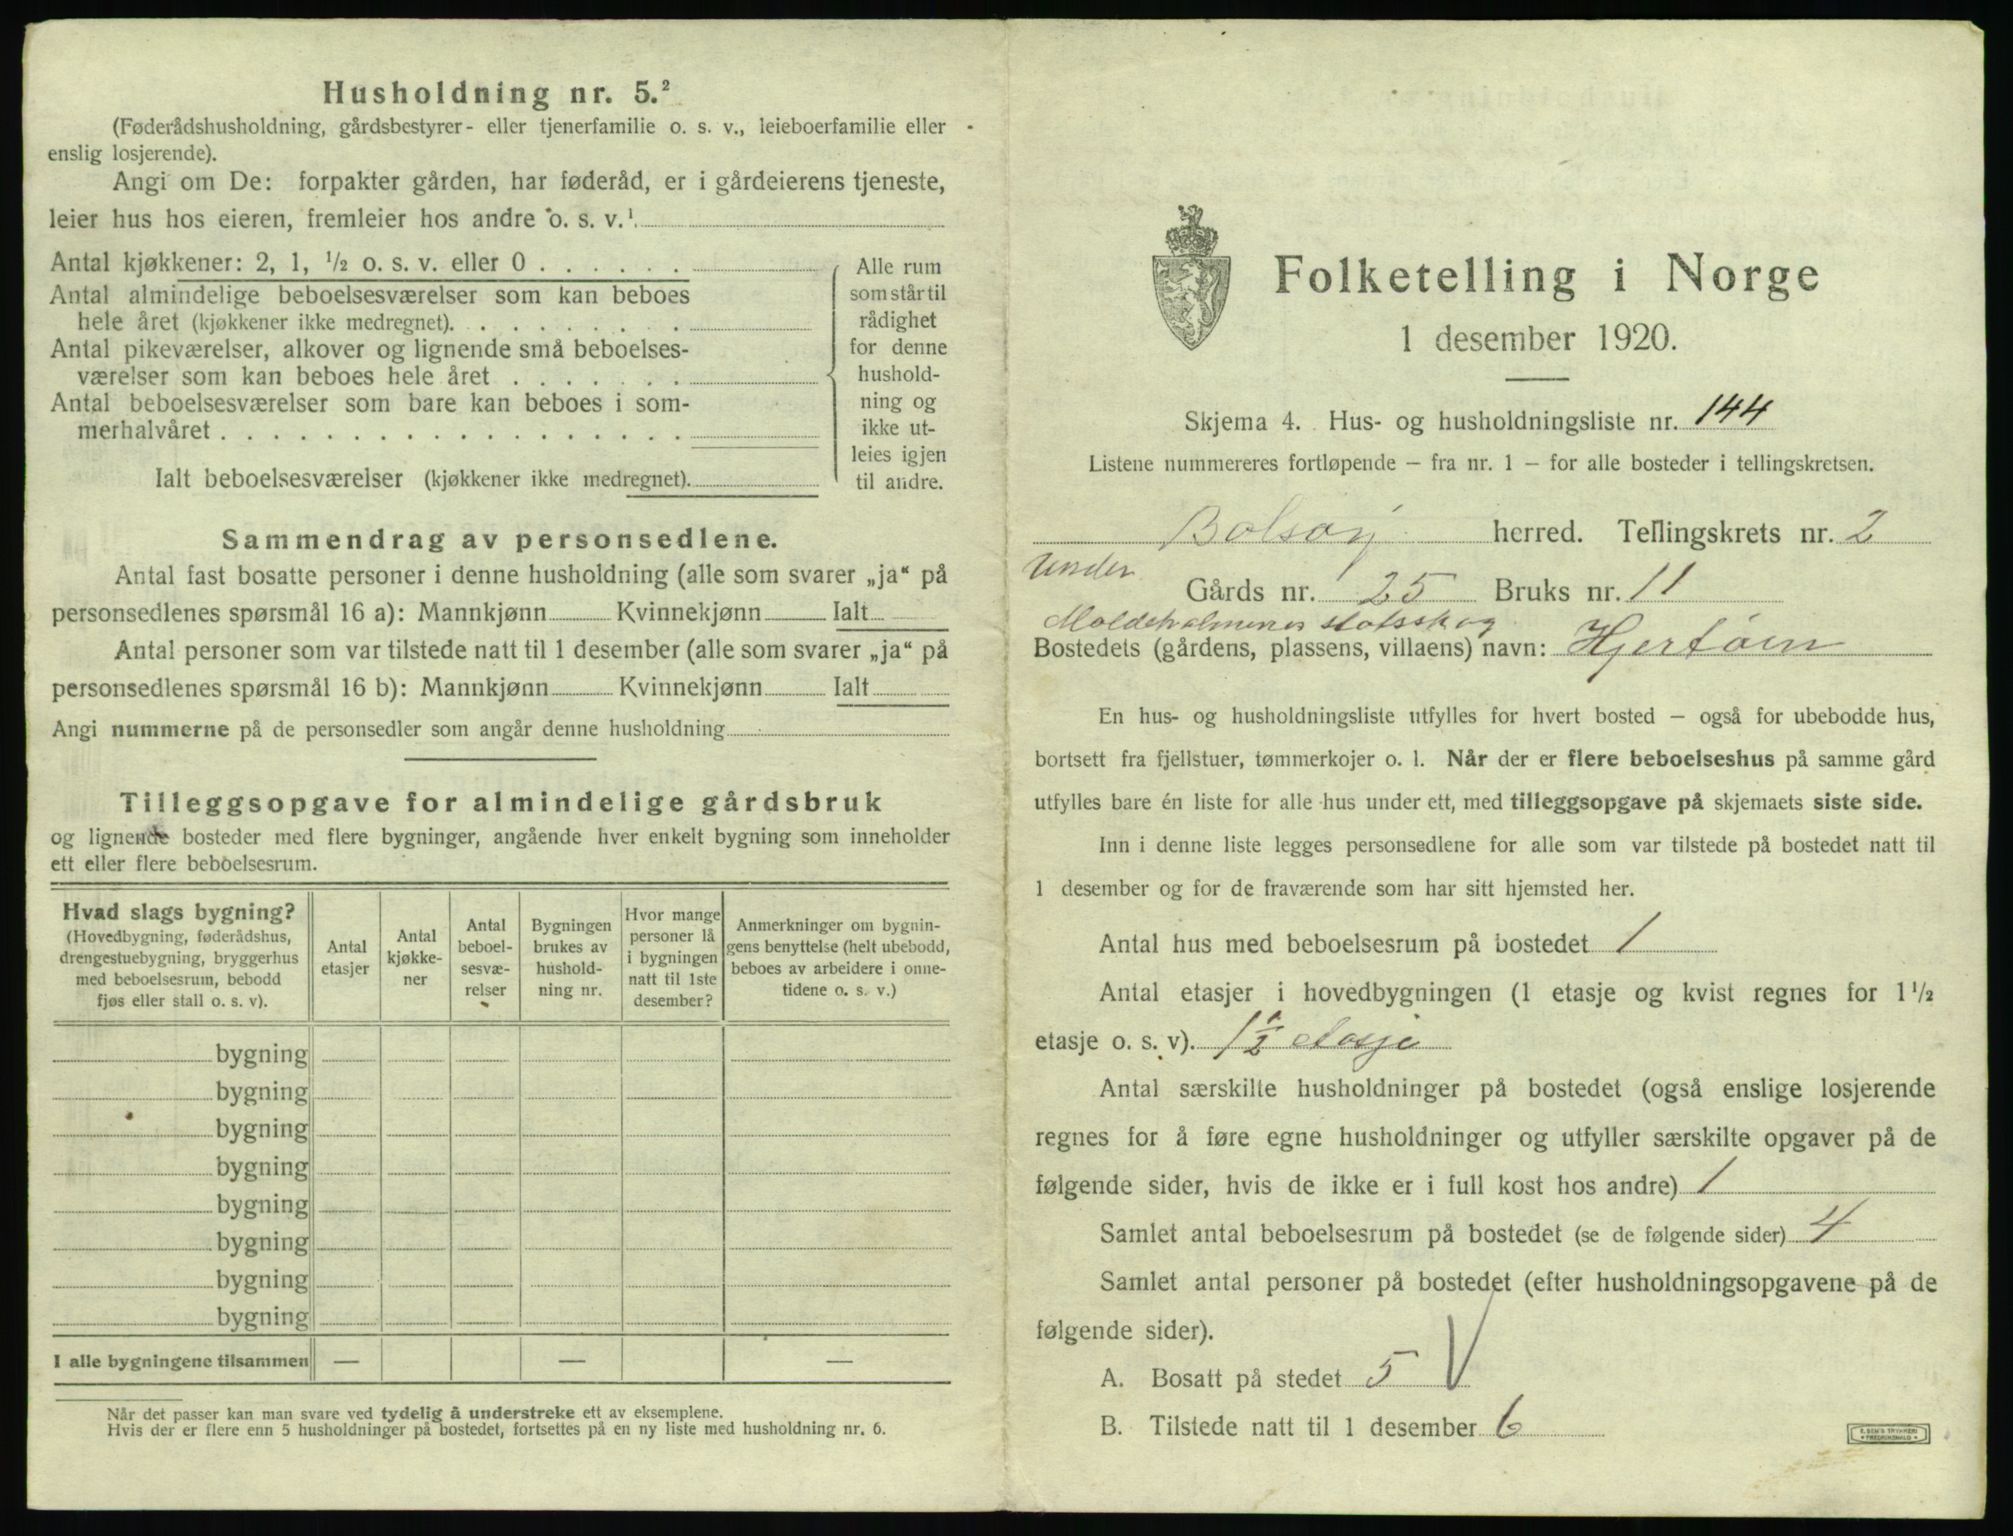 Husholdning nr. 5.²
(Føderådshusholdning, gårdsbestyrer- eller tjenerfamilie o. s. v., leieboerfamilie eller
enslig losjerende).
Angi om De: forpakter gården, har føderåd, er i gårdeierens tjeneste,
leier hus hos eieren, fremleier hos andre o. s. v.¹
Antal kjøkkener: 2, 1, ½ o. s. v. eller 0 . . . . . .
Antal almindelige beboelsesværelser som kan beboes
hele året (kjøkkener ikke medregnet). . . . . . . .
Antal pikeværelser, alkover og lignende små beboelses-
værelser som kan beboes hele året . . . . . . .
Antal beboelsesværelser som bare kan beboes i som-
merhalvåret . . . . . . . . . . . . . . . . . .
Ialt beboelsesværelser (kjøkkener ikke medregnet).
Alle rum
som står til
rådighet
for denne
hushold-
ning og
ikke ut-
leies igjen
til andre.
Sammendrag av personsedlene.
Antal fast bosatte personer i denne husholdning (alle som svarer „ja“ på
personsedlenes spørsmål 16 a): Mannkjønn Kvinnekjønn Ialt
Antal personer som var tilstede natt til 1 desember (alle som svarer „ja“ på
personsedlenes spørsmål 16 b): Mannkjønn Kvinnekjønn Ialt
Angi nummerne på de personsedler som angår denne husholdning
Tilleggsopgave for almindelige gårdsbruk
og lignende bosteder med flere bygninger, angående hver enkelt bygning som inneholder
ett eller flere beboelsesrum.
Hvad slags bygning?
(Hovedbygning, føderådshus,
drengestuebygning, bryggerhus
med beboelsesrum, bebodd
fjøs eller stall o. s. v).
Antal
etasjer
Antal
kjøkke-
ner
Antal
beboel-
sesvæ-
relser
Bygningen
brukes av
hushold-
ning nr.
Hvor mange
personer lå
i bygningen
natt til 1ste
desember?
Anmerkninger om bygnin-
gens benyttelse (helt ubebodd,
beboes av arbeidere i onne-
tidene o. s. v.)
bygning
bygning
bygning
bygning
bygning
bygning
bygning
bygning
I alle bygningene tilsammen — — —
Når det passer kan man svare ved tydelig å understreke ett av eksemplene.
Hvis der er flere enn 5 husholdninger på bostedet, fortsettes på en ny liste med husholdning nr. 6.
Folketelling i Norge
1 desember 1920.
Skjema 4. Hus- og husholdningsliste nr. 144
Listene nummereres fortløpende — fra nr. 1 — for alle bosteder i tellingskretsen.
Bolsøy herred. Tellingskrets nr. 2
under
Gårds nr. 25 Bruks nr. 11
Moldehalmenes statsskog
Bostedets (gårdens, plassens, villaens) navn: Hjertøen
En hus- og husholdningsliste utfylles for hvert bosted — også for ubebodde hus,
bortsett fra fjellstuer, tømmerkojer o. l. Når der er flere beboelseshus på samme gård
utfylles bare én liste for alle hus under ett, med tilleggsopgave på skjemaets siste side.
Inn i denne liste legges personsedlene for alle som var tilstede på bostedet natt til
1 desember og for de fraværende som har sitt hjemsted her.
Antal hus med beboelsesrum på bostedet 1
Antal etasjer i hovedbygningen (1 etasje og kvist regnes for 1½
etasje o. s. v). 1½ etasje
Antal særskilte husholdninger på bostedet (også enslige losjerende
regnes for å føre egne husholdninger og utfyller særskilte opgaver på de
følgende sider, hvis de ikke er i full kost hos andre) 1
Samlet antal beboelsesrum på bostedet (se de følgende sider) 4
Samlet antal personer på bostedet (efter husholdningsopgavene på de
følgende sider).
A. Bosatt på stedet 5
B. Tilstede natt til 1 desember 6